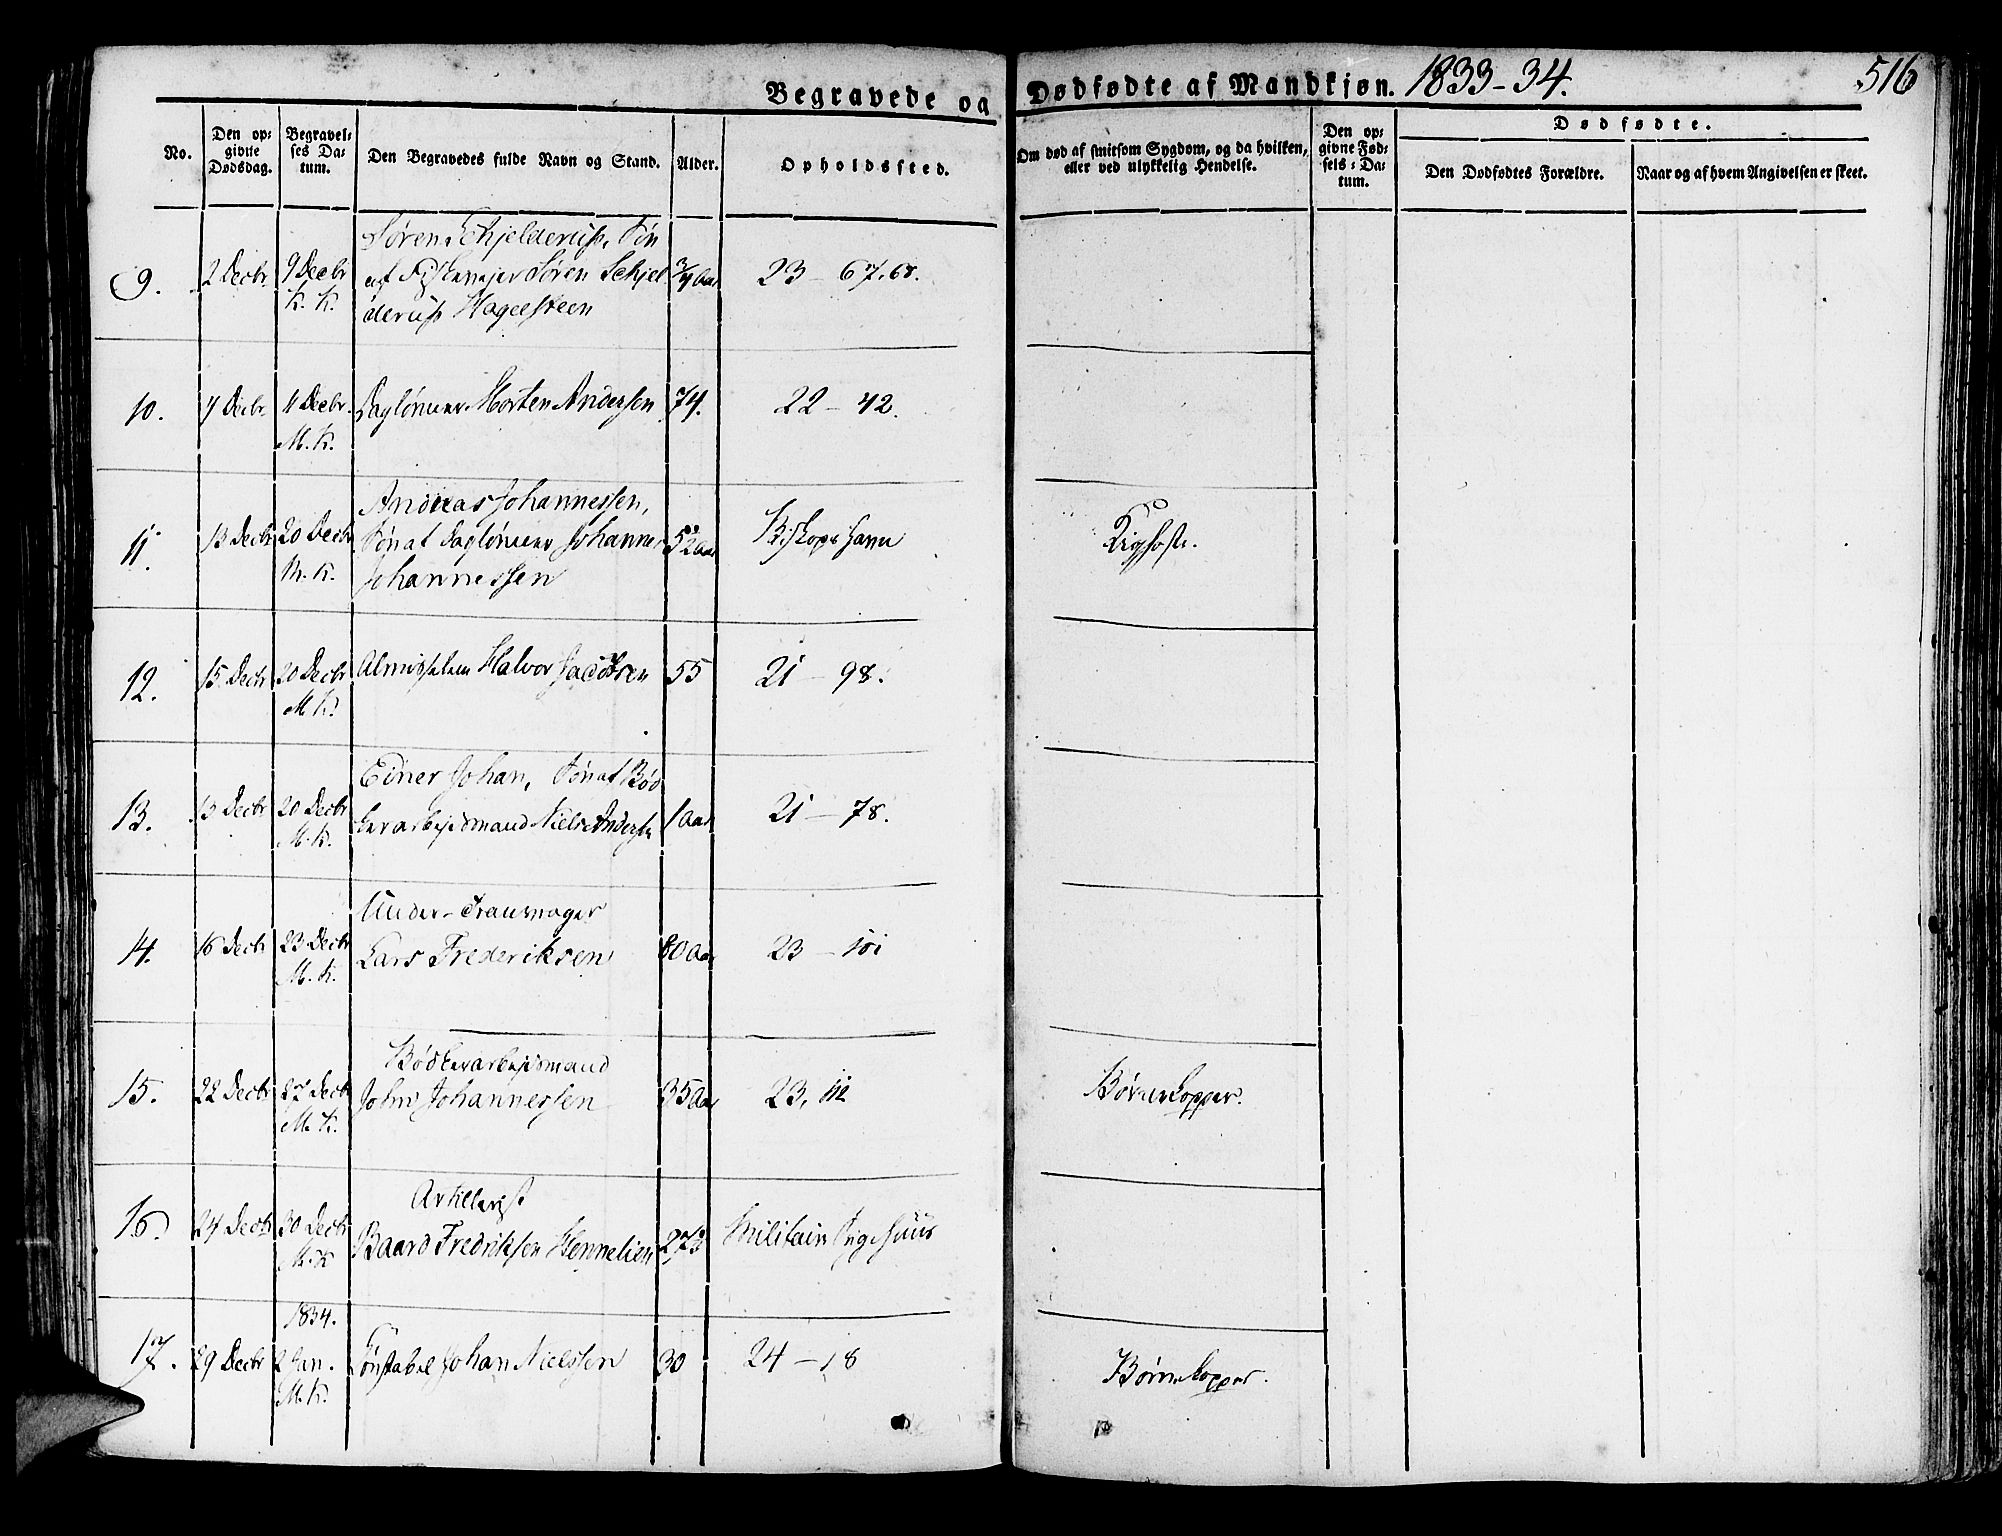 Begravede og Dødfødte af Mandkjøn. 1833-34. 516
No.
Den op-
givne
Dødsdag.
Begravel-
ses Da-
tum.
Den Begravedes fulde Navn og Stand.
Alder.
Opholdssted.
Om død af smitsom Sygdom, og da hvilken,
eller ved ulykkelig Hendelse.
Den op-
givne Fød-
sels-Da-
tum.
Dødfødte.
Den Dødfødtes Forældre.
Naar og af hvem Angivelsen er skeet.
Søren Schjelderup, Søn
9. 2 Decbr 9 Decbr af Søren Schjel 3/4 Aar 23 - 67.68.
K. K. derup Hagelsteen
10. 7 Decbr. 11 Decbr. Daglønner Morten Andersen 74. 22 - 42.
M. K.
Andreas Johannessen,
11. 13 Decbr 20 Decbr Søn af Daglønner Johannes Aar Biskopshavn Kighoste.
M. K. Johannessen
12. 15 Decbr 20 Decbr Almisselem Halvor Jacobsen 55 21 - 98.
M. K.
Einer Johan, Søn af Bød
13. 13 Decbr 20 Decbr kerarbejdsmand Niels Anderse 1 Aar 21 - 78.
M. K.
Under-
14. 16 Decbr 23 Decbr Lars Frederiksen 80 Aar 23 - 101
M. K.
Bødkerarbejdsmand
15. 22 Decbr 27 Decbr John Johannessen 35 Aar 23, 112 Børnekopper.
M. K.
Artillerist
16. 24 Decbr 30 Decbr Baard Fredriksen Hennelien Militair Sygehuus
M. K
1834.
17. 29 Decbr 2 Jan. Constabel Johan Nielssen 30 24 - 18 Børnekopper.
M. K.